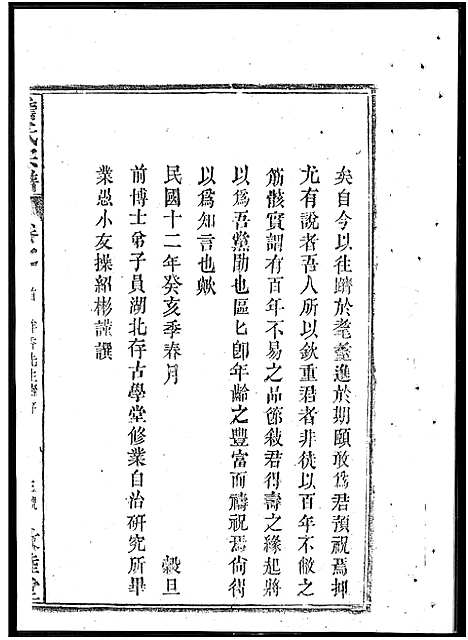 矣自今以往躋於耄耋進於期頤敢爲君預祝焉抑
尤有說者吾人所以欽重君者非徒以百年不敝之
筋骸實謂有百年不易之品節敍君得壽之緣起將
以爲吾黨勛也區匕卽年齡之豐富而禱祝焉倘得
以爲知言也歟
民國十二年癸亥季春月　穀旦
前博士弟子員湖北存古學堂修業自治研究所畢
業愚小友操紹彬謹譔
氏宗譜 卷之 首
堂